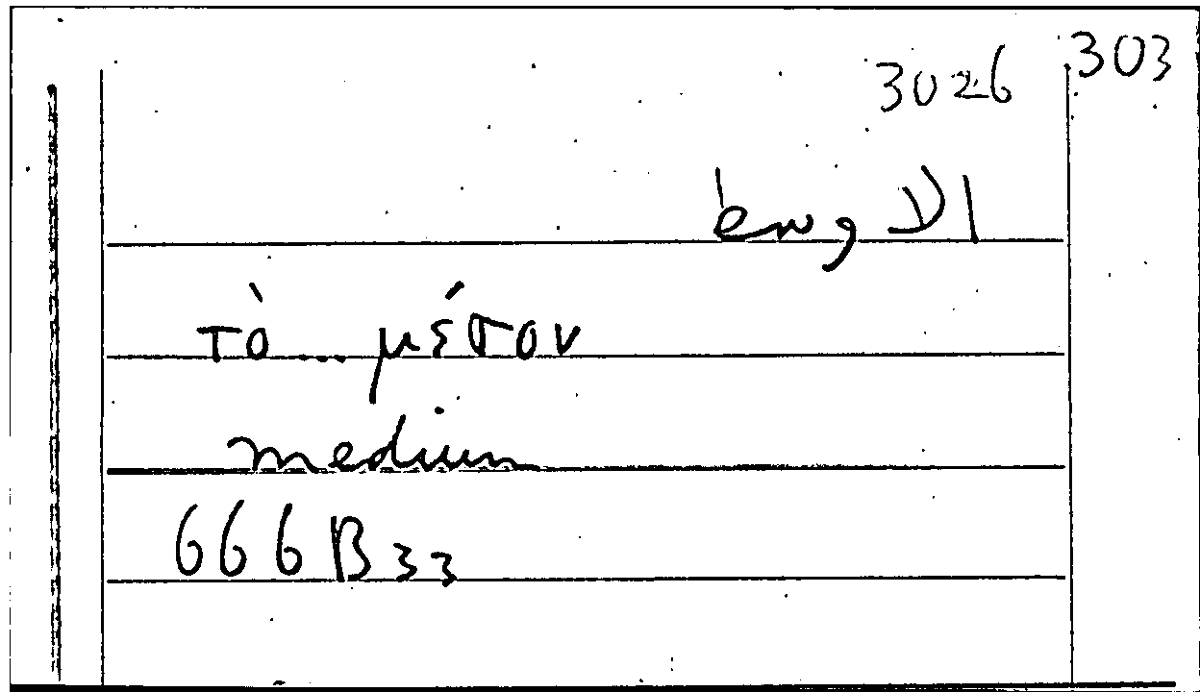 3026 303
τὸ ... μέσον
medium
666B33